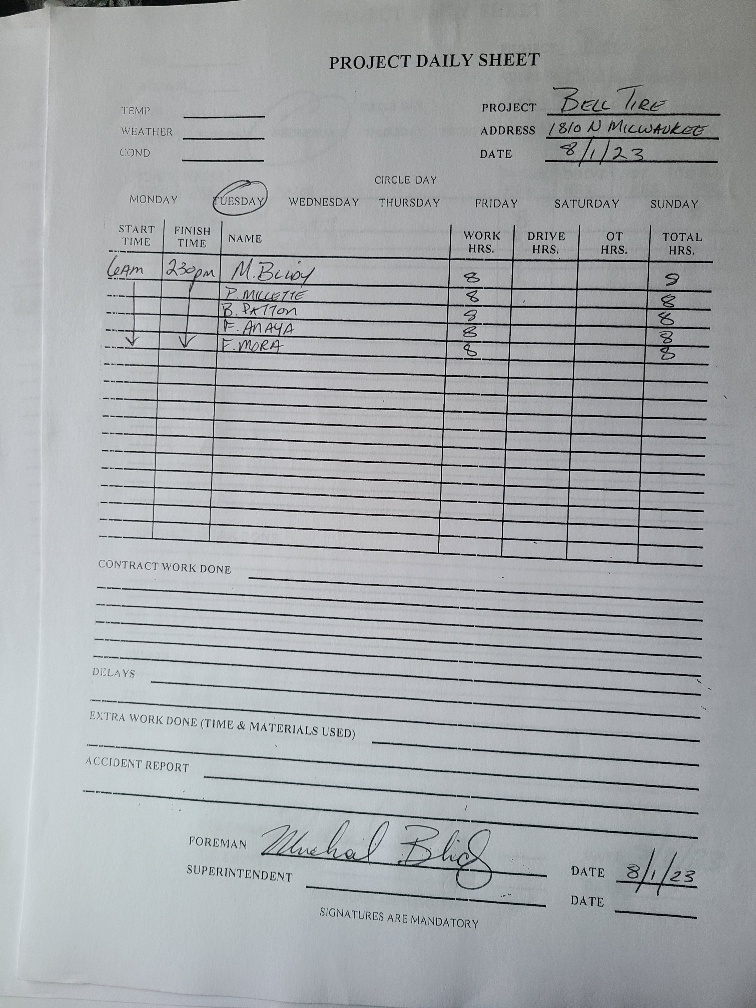 PROJECT DAILY SHEET
TEMP
WEATHER
COND
PROJECT BELL TIRE
ADDRESS 1810 N MILWAUKEE
DATE 8/1/23
CIRCLE DAY
MONDAY TUESDAY WEDNESDAY THURSDAY FRIDAY SATURDAY SUNDAY
START TIME FINISH TIME NAME WORK HRS. DRIVE HRS. OT HRS. TOTAL HRS.
6AM 230pm M. 8
P. MILLETTE 8 8
B. PATTON 8 8
F. ANAYA 8 8
F. MORA 8 8
CONTRACT WORK DONE
DELAYS
EXTRA WORK DONE (TIME & MATERIALS USED)
ACCIDENT REPORT
FOREMAN DATE 8/1/23
SUPERINTENDENT DATE
SIGNATURES ARE MANDATORY